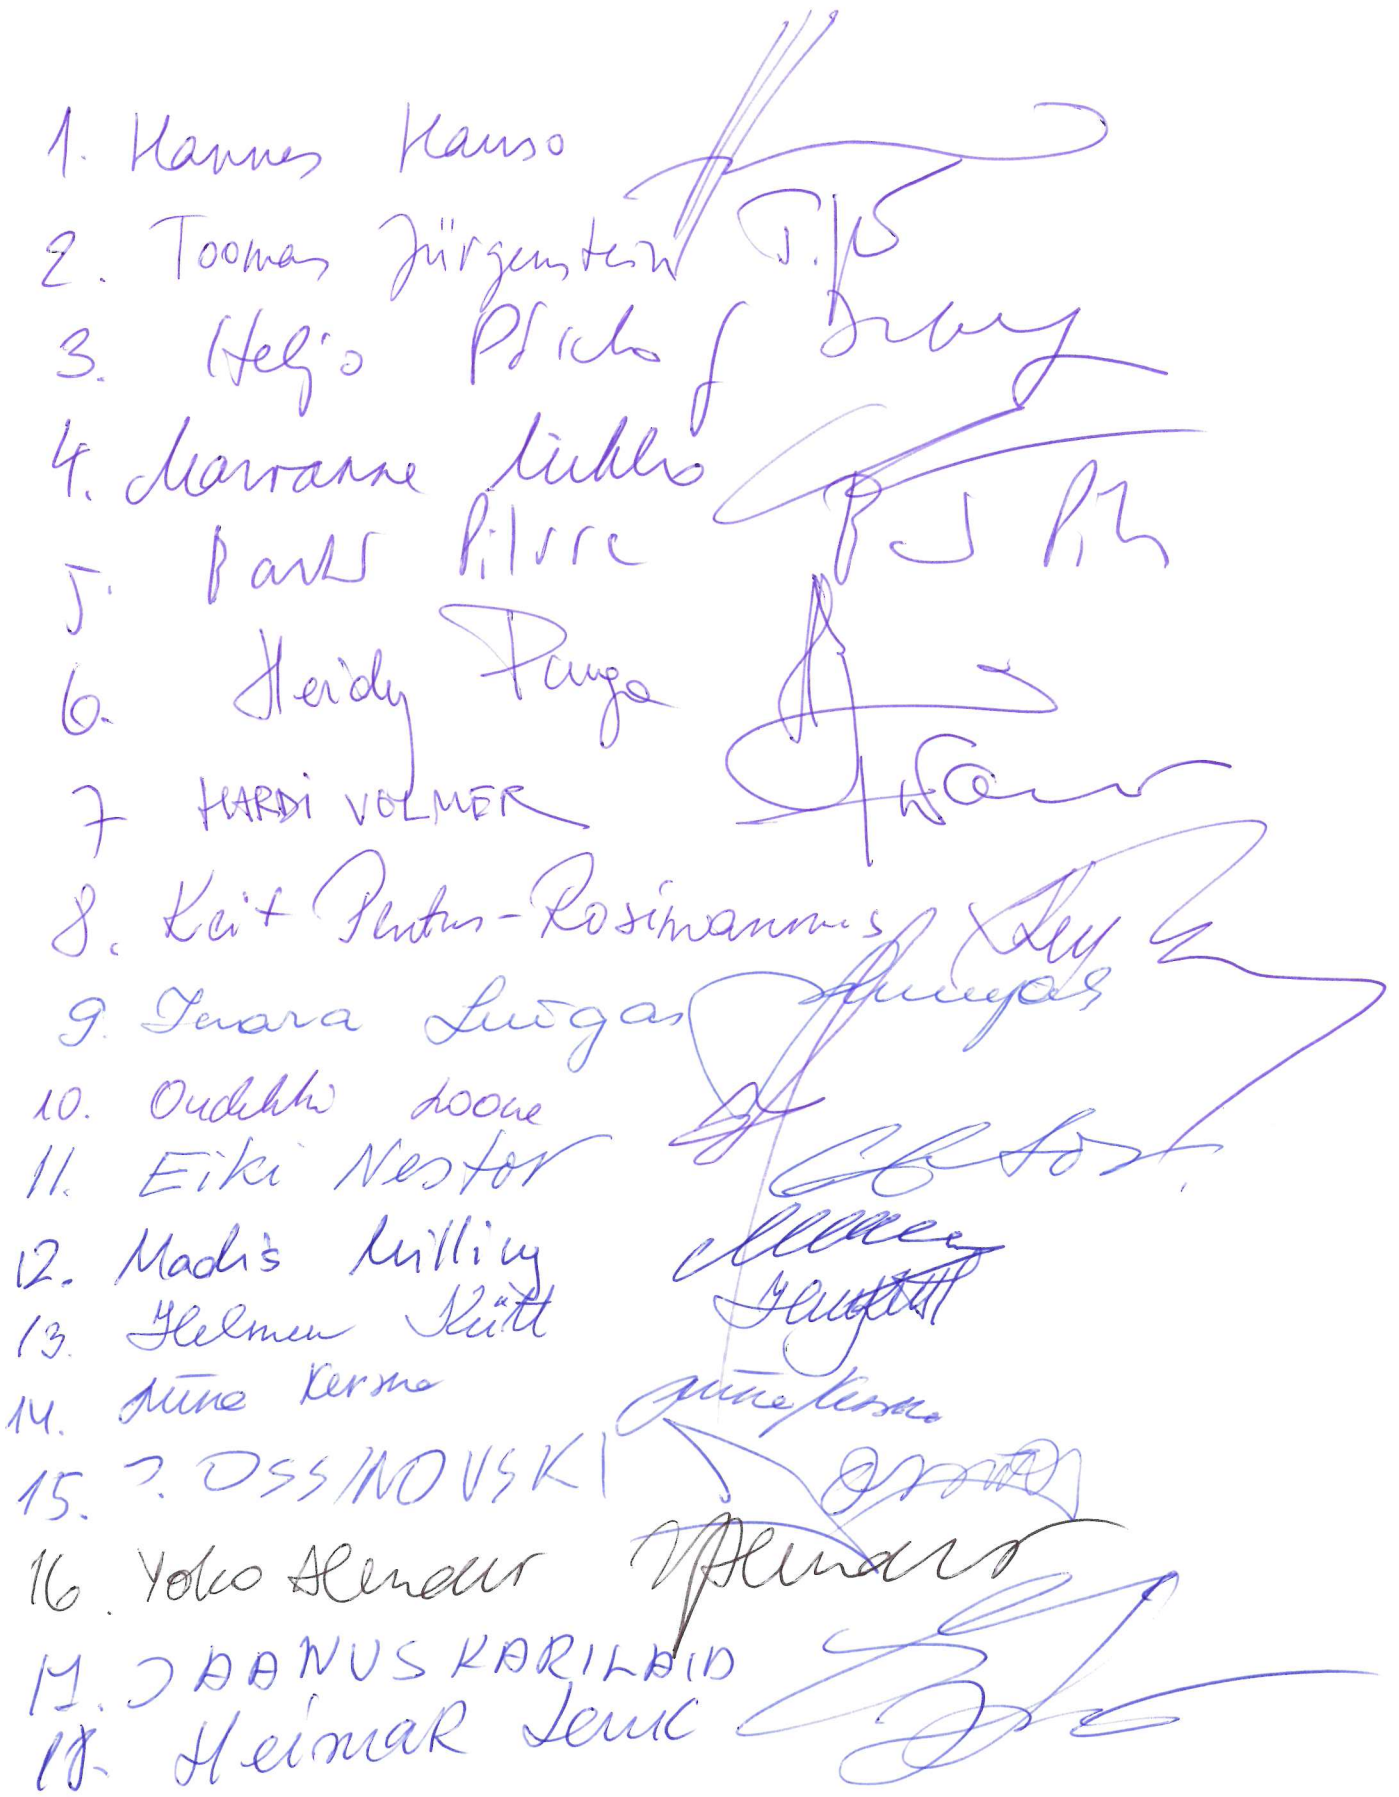 1. Hannes Hanso
2. Toomas Jürgenstein T.J
3. Heljo Pikhof
4. Marianne Mikko
5. Barbi Pilvre B J Pil
6. Heidy Purga
7 HARDi VOLMER
8. Keit Pentus-Rosimannus
9. Inara Luigas
10. Oudekki Loone
11. Eiki Nestor
12. Madis Milling
13. Helmen Kütt
14. Liina Kersna Liina Kersna
15. J. OSSINOVSKI
16. Yoko Alender YAlender
17. JAANUS KARILAID
18. Heimar Lenk